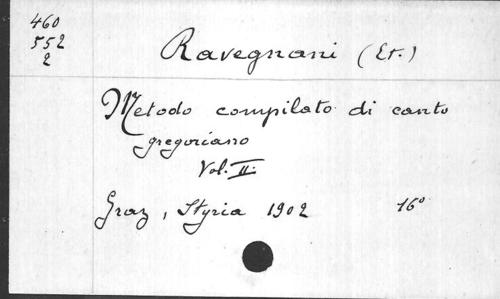 460
552
2
Ravegnani (Et.)
Metodo compilato di canto
gregoriano
Vol. II.
Graz, Styria 1902 16°